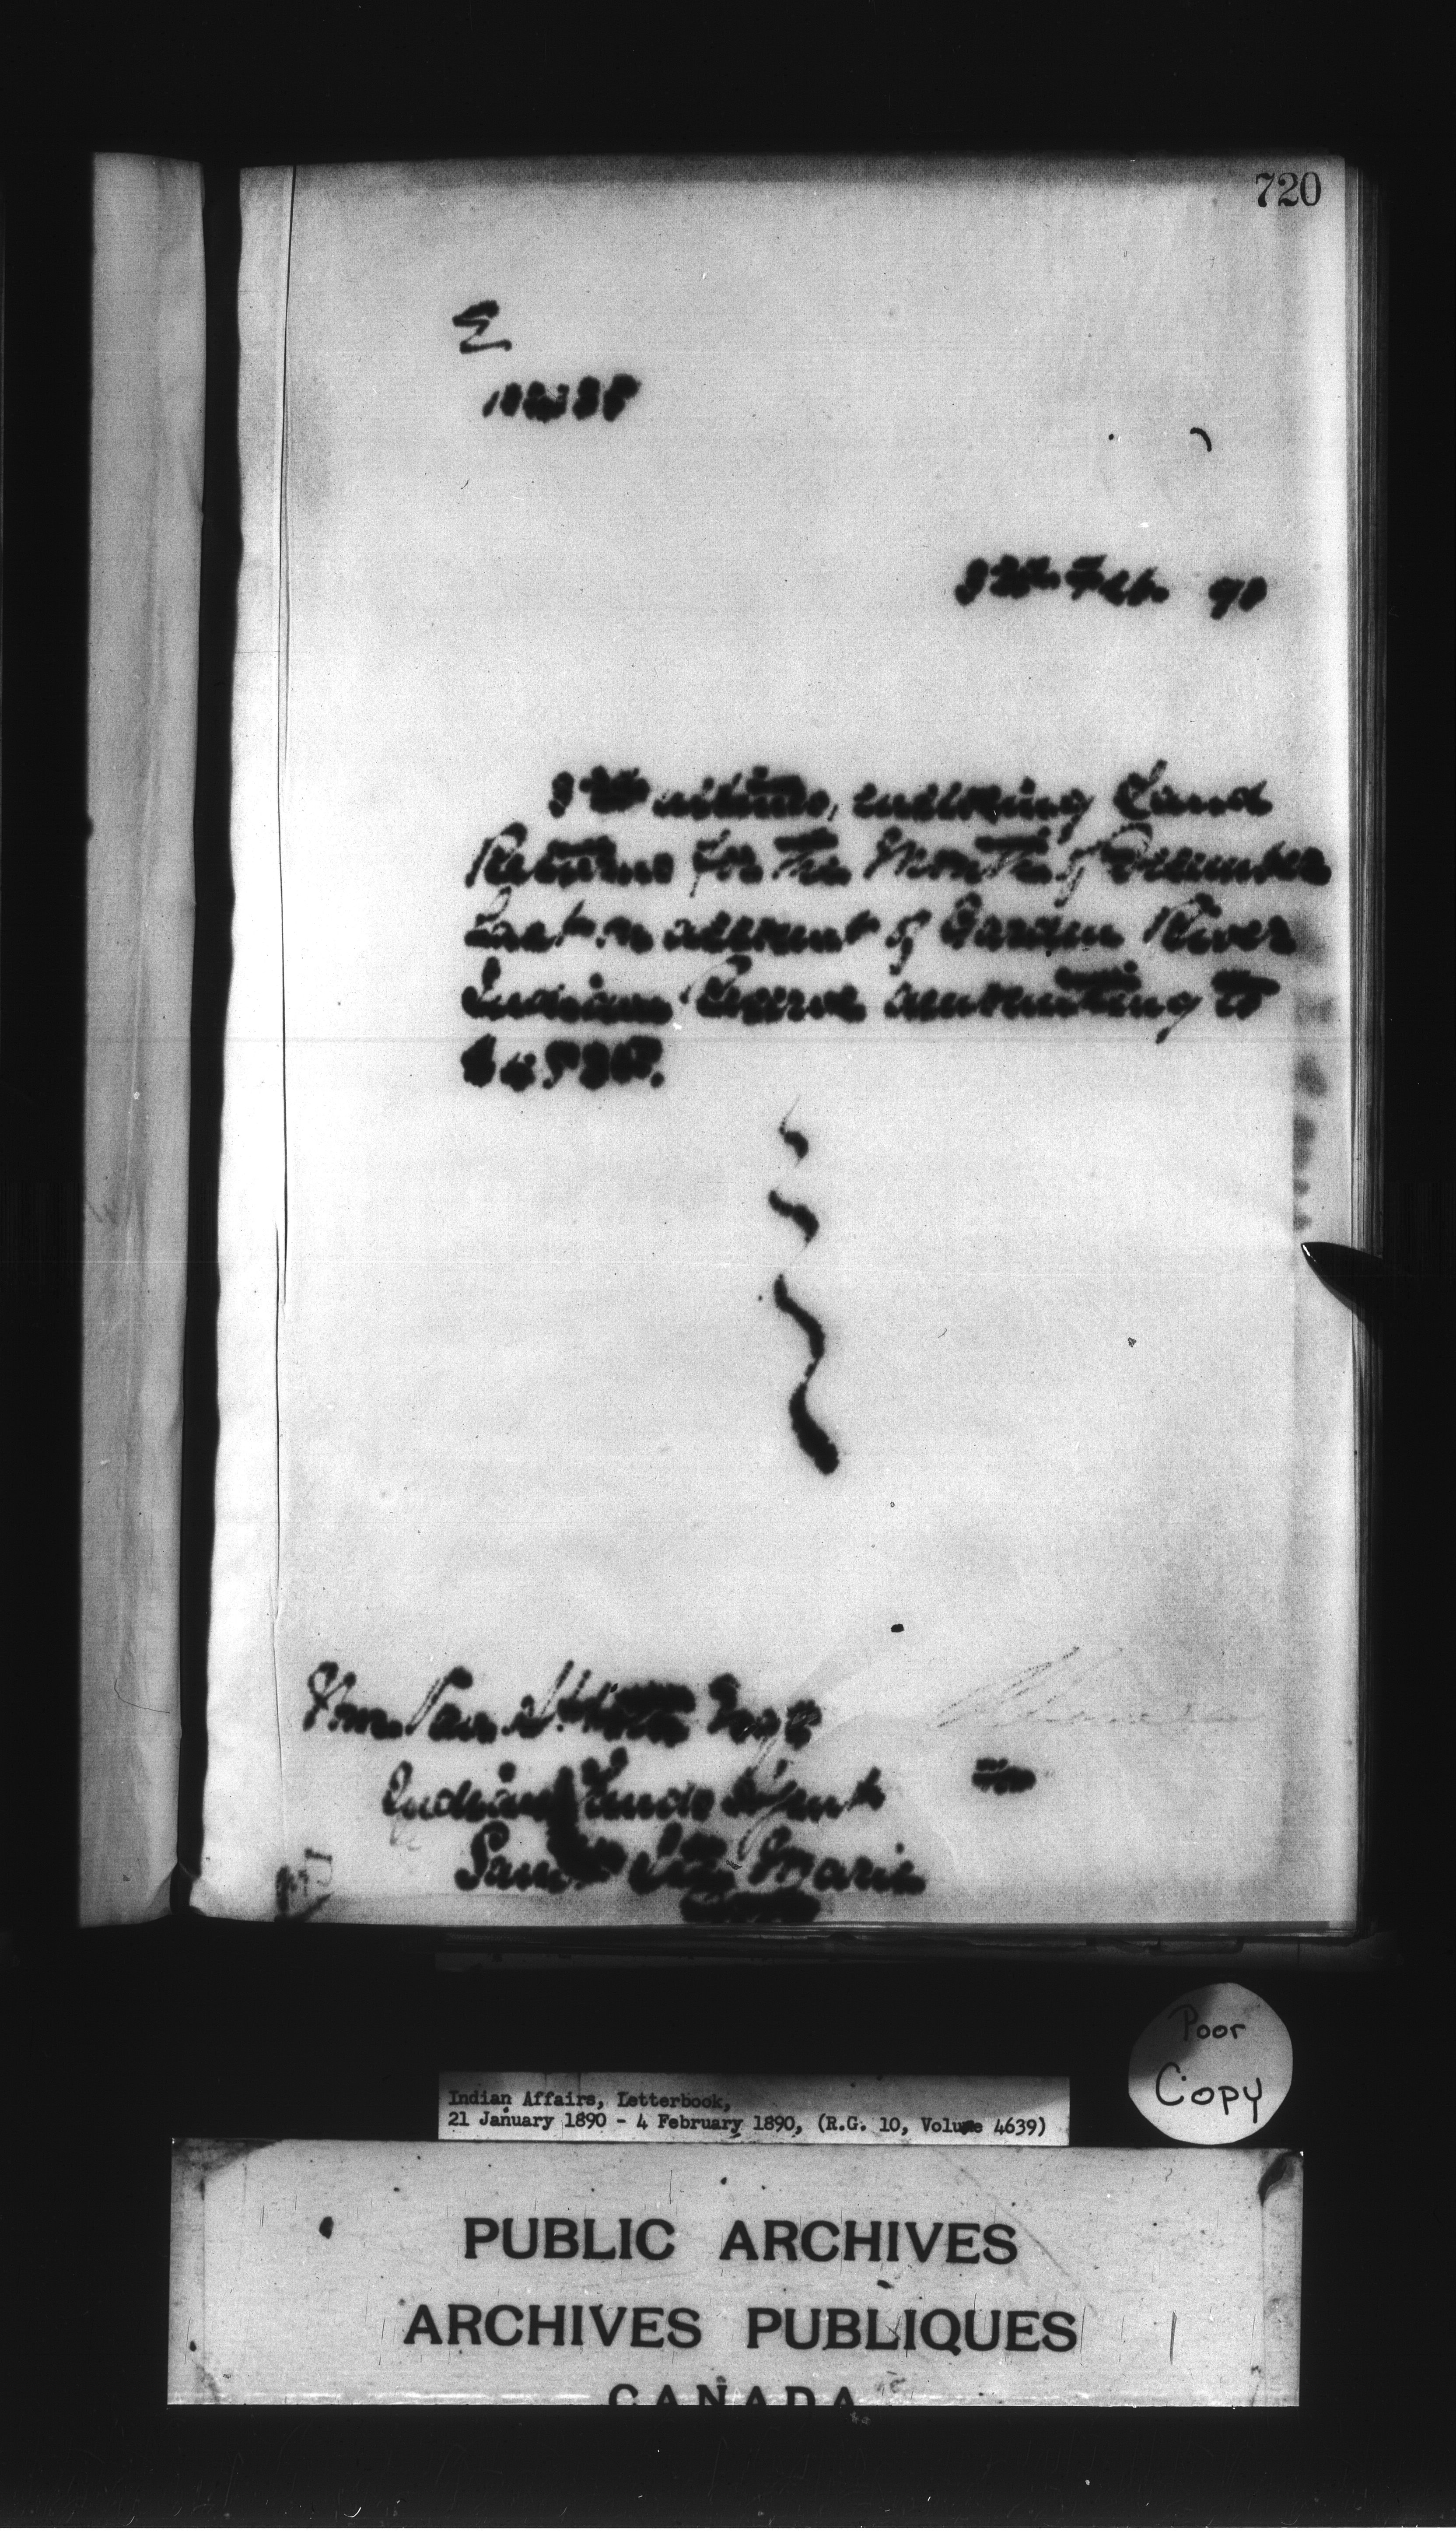 720
Feb. 90
ultimo, enclosing Land
Returns for the Month of December
Last on account of Garden River
Indian Reserve amounting to
Wm Van Esqr
Indian Lands Agent
Sault Ste Marie
Poor
Copy
Indian Affairs, Letterbook,
21 January 1890 - 4 February 1890, (R.G. 10, Volume 4639)
PUBLIC ARCHIVES
ARCHIVES PUBLIQUES
CANADA